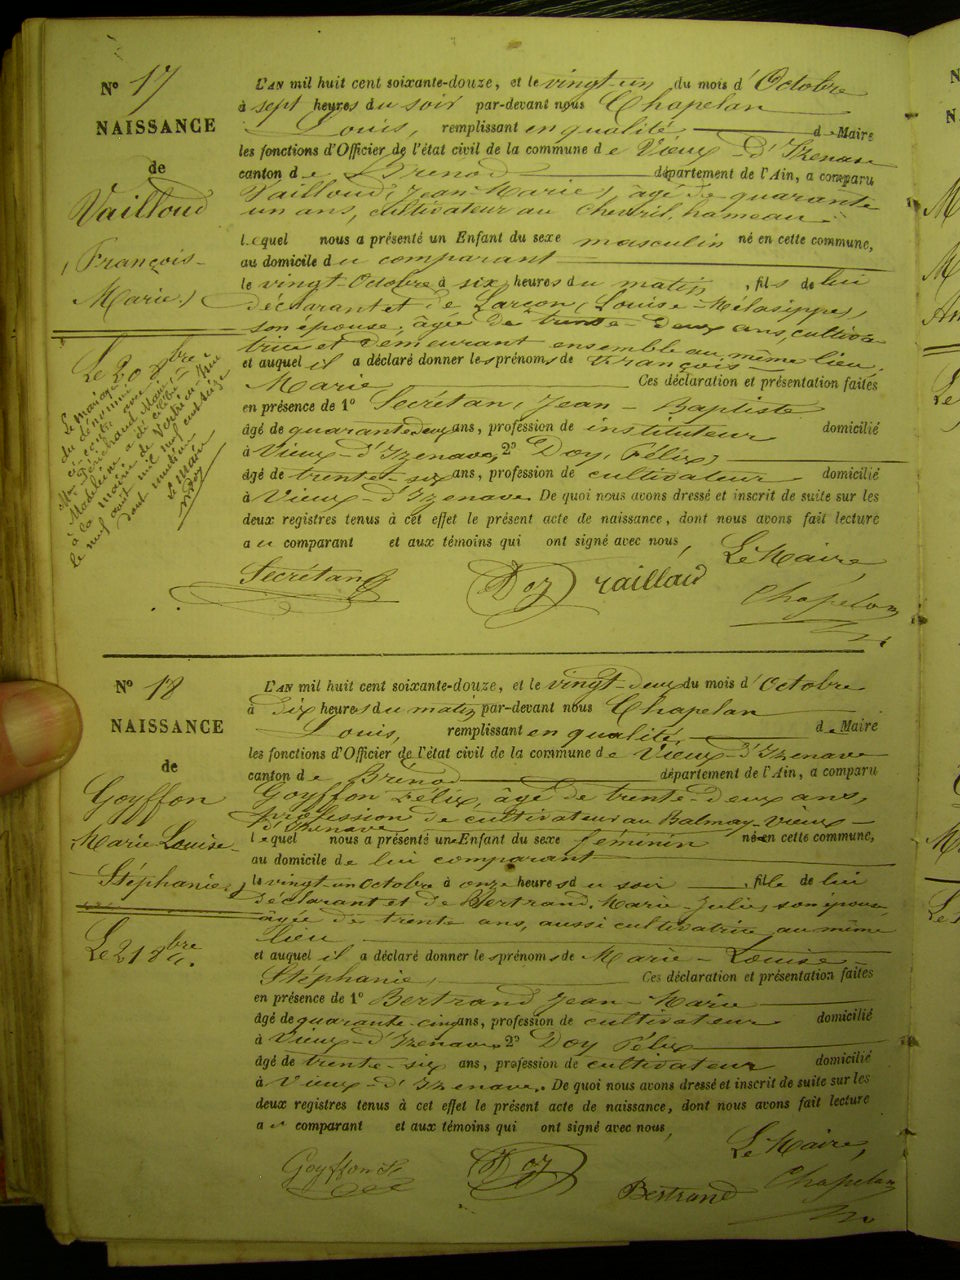 N° 17
NAISSANCE
de
Vailloud
(François-
Marie)
Le 20 8bre
Le mariage
du dénommé
ci-contre avec
Mlle Périchaud Marie
Madeleine a été célébré
à la mairie de
le neuf août mil neuf cent seize
Dont mention
Le Maire
Doy
L'AN mil huit cent soixante-douze, et le vingt-un du mois d'Octobre
à sept heures du soir par-devant nous Chapelan
Louis, remplissant en qualité de Maire
les fonctions d'Officier de l'état civil de la commune de Vieux-d'Izenave
canton de Brénod département de l'Ain, a comparu
Vailloud (Jean-Marie) âgé de quarante
un ans, cultivateur au Chevril, hameau
lequel nous a présenté un Enfant du sexe masculin né en cette commune,
au domicile du comparant
le vingt Octobre à six heures du matin, fils de lui
déclarant et de Larçon (Louise-Mélasippe),
son épouse, âgée de trente-deux ans, cultiva-
trice et demeurant ensemble au même lieu,
et auquel il a déclaré donner les prénoms de François-
Marie Ces déclaration et présentation faites
en présence de 1° Secrétan, Jean-Baptiste
âgé de quarante deux ans, profession de instituteur domicilié
à Vieux-d'Izenave, 2° Doy, Félix,
âgé de trente-six ans, profession de cultivateur domicilié
à Vieux-d'Izenave. De quoi nous avons dressé et inscrit de suite sur les
deux registres tenus à cet effet le présent acte de naissance, dont nous avons fait lecture
au comparant et aux témoins qui ont signé avec nous,
Le Maire,
Secrétan Doy Vailloud Chapelan
N° 18
NAISSANCE
de
Goyffon
(Marie-Louise-
Stéphanie)
Le 21 8bre.
L'AN mil huit cent soixante-douze, et le vingt-deux du mois d'Octobre
à dix heures du matin par-devant nous Chapelan
Louis, remplissant en qualité de Maire
les fonctions d'Officier de l'état civil de la commune de Vieux-d'Izenave
canton de Brénod département de l'Ain, a comparu
Goyffon Félix, âgé de trente-deux ans,
profession de cultivateur au Balmay-Vieux-
d'Izenave
lequel nous a présenté un Enfant du sexe féminin né en cette commune,
au domicile de lui comparant
le vingt un Octobre à onze heures du soir, fille de lui
déclarant et de Bertrand, Marie-Julie, son épouse,
âgée de trente ans, aussi cultivatrice au même
lieu
et auquel il a déclaré donner les prénoms de Marie-Louise-
Stéphanie, Ces déclaration et présentation faites
en présence de 1° Bertrand Jean-Marie
âgé de quarante-cinq ans, profession de cultivateur domicilié
à Vieux-d'Izenave, 2° Doy Félix
âgé de trente-six ans, profession de cultivateur domicilié
à Vieux-d'Izenave. De quoi nous avons dressé et inscrit de suite sur les
deux registres tenus à cet effet le présent acte de naissance, dont nous avons fait lecture
au comparant et aux témoins qui ont signé avec nous,
Le Maire,
Goyffon F. Doy Bertrand Chapelan